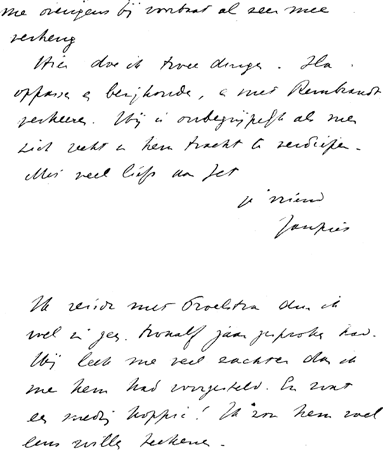 me overigens bij voorbaat al zeer mee
verheug
Hier doe ik twee dingen. Ha
oppassen en bezighouden, en met Rembrandt
verkeeren. Hij is onbegrijpelijk als men
zich recht in hem tracht te verdiepen.
Met veel liefs aan Jet
je vriend
Ik reisde met Troelstra dien ik
wel in geen twaalf jaar gesproken had.
Hij leek me veel zachter dan ik
me hem had voorgesteld. En wat
een kop! Ik zou hem wel
eens willen teekenen.